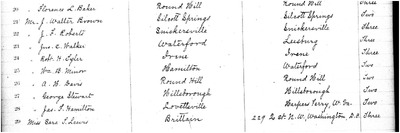 20 Florence L. Baker Round Hill Round Hill Three
21 Mr. J. Walter Brown Silcott Springs Silcott Springs Two
22 " J. F. Roberts Snickersville Snickersville Two
23 " Jno. C. Walker Waterford Leesburg Three
24 " Robt. H. Tyler Irene Irene Three
25 " Wm. B. Minor Hamilton Waterford Two
26 " A. B. Davis Round Hill Round Hill Two
27 " George Stewart Hillsborough Hillsborough Two
28 " Jas. F. Hamilton Lovettsville Harpers Ferry, W. Va. Two
29 Miss Sara S. Lewis Brittain 229 2 st. N. W. Washington D.C. Three